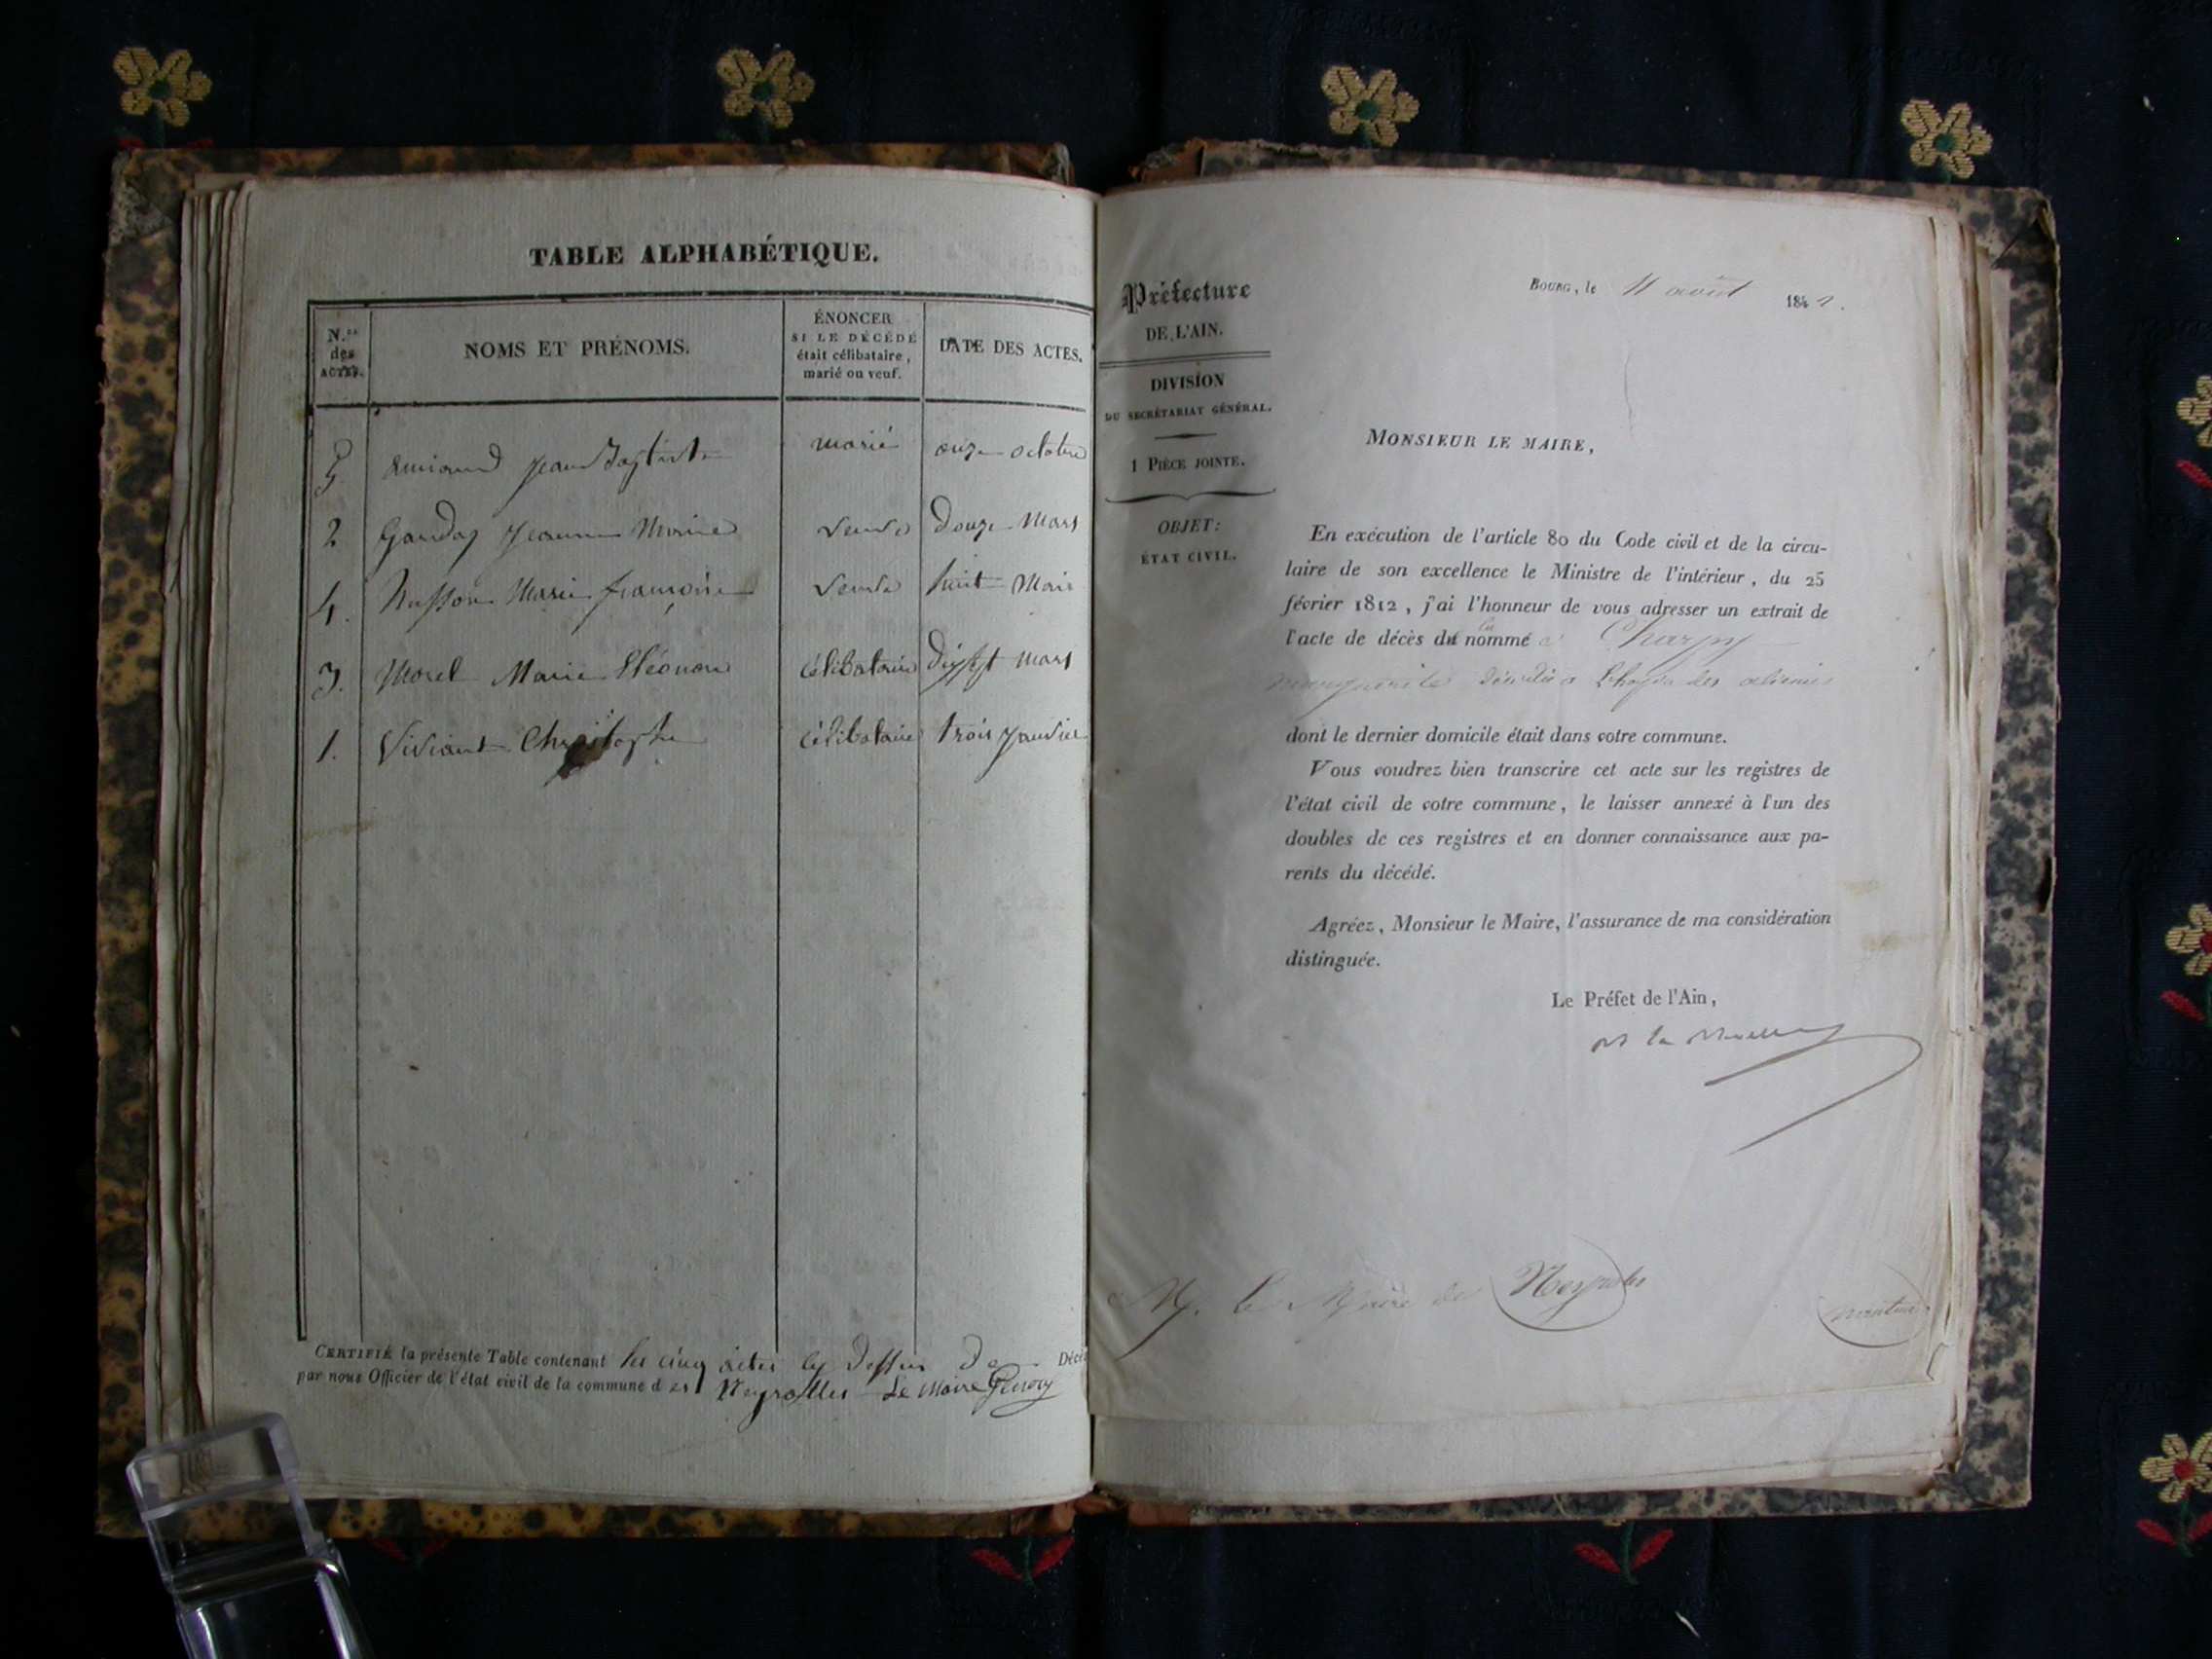 TABLE ALPHABÉTIQUE.
N.os des ACTES.
NOMS ET PRÉNOMS.
ÉNONCER
SI LE DÉCÉDÉ
était célibataire,
marié ou veuf.
DATE DES ACTES.
5 Jean Baptiste marié onze octobre
2 Jeanne Marie veuve Douze Mars
4. Husson Marie françoise veuve huit
3. Morel Marie Eléonore célibataire dix sept mars
1. Viviant Christophe célibataire trois janvier
CERTIFIÉ la présente Table contenant les cinq actes cy dessus de Décès
par nous Officier de l'état civil de la commune d es Neyrolles Le Maire
Préfecture
DE L'AIN.
DIVISION
DU SECRÉTARIAT GÉNÉRAL.
1 PIÈCE JOINTE.
OBJET:
ÉTAT CIVIL.
BOURG, le 11 août 184
MONSIEUR LE MAIRE,
En exécution de l'article 80 du Code civil et de la circu-
laire de son excellence le Ministre de l'intérieur, du 25
février 1812, j'ai l'honneur de vous adresser un extrait de
l'acte de décès du nommé Charpy
marguerite décédée a des aliénés
dont le dernier domicile était dans votre commune.
Vous voudrez bien transcrire cet acte sur les registres de
l'état civil de votre commune, le laisser annexé à l'un des
doubles de ces registres et en donner connaissance aux pa-
rents du décédé.
Agréez, Monsieur le Maire, l'assurance de ma considération
distinguée.
Le Préfet de l'Ain,
M. le Maire de Neyrolles